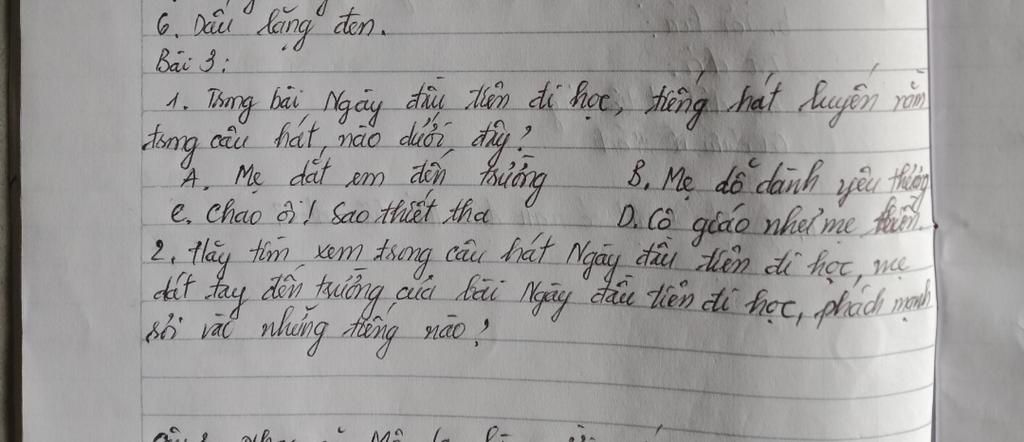 6. Dấu lặng đen.
Bài 3:
1. Trong bài Ngày đầu tiên đi học, tiếng hát luyến nằm
trong câu hát nào dưới đây?
A. Mẹ dắt em đến trường B. Mẹ dỗ dành yêu thương
C. Chao ôi! Sao thiết tha D. Cô giáo như mẹ hiền.
2. Hãy tìm xem trong câu hát Ngày đầu tiên đi học, mẹ
dắt tay đến trường của bài Ngày đầu tiên đi học, phách mạnh
rơi vào những tiếng nào?